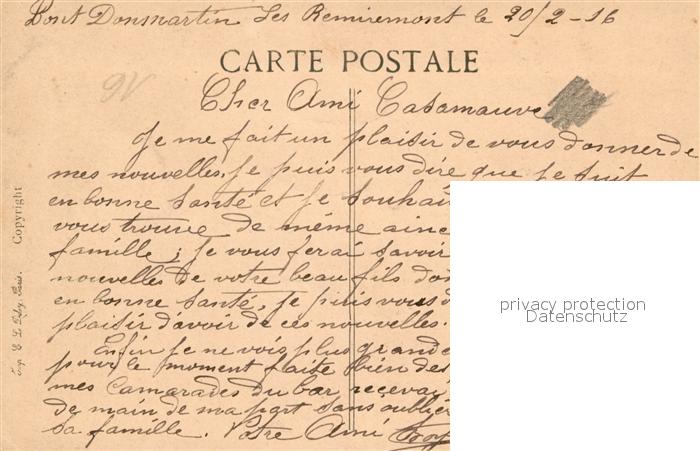 Pont Donmartin Les Remiremont le 20/2-16
CARTE POSTALE
Cher Ami Casamauve
Je me fait un plaisir de vous donner de
mes nouvelles. Je puis vous dire que je suit
en bonne santé et je souhai
vous trouve de même ainc
famille; je vous ferai savoir
nouvelles de votre beau fils don
en bonne santé, je puis vous d
plaisir d'avoir de ces nouvelles.
Enfin je ne vois plus grande
pour le moment faite bien des
mes camarades du bar recevai
de main de ma part sans oublie
sa famille. Votre Ami
Copyright
Imp. Paris.
privacy protection
Datenschutz